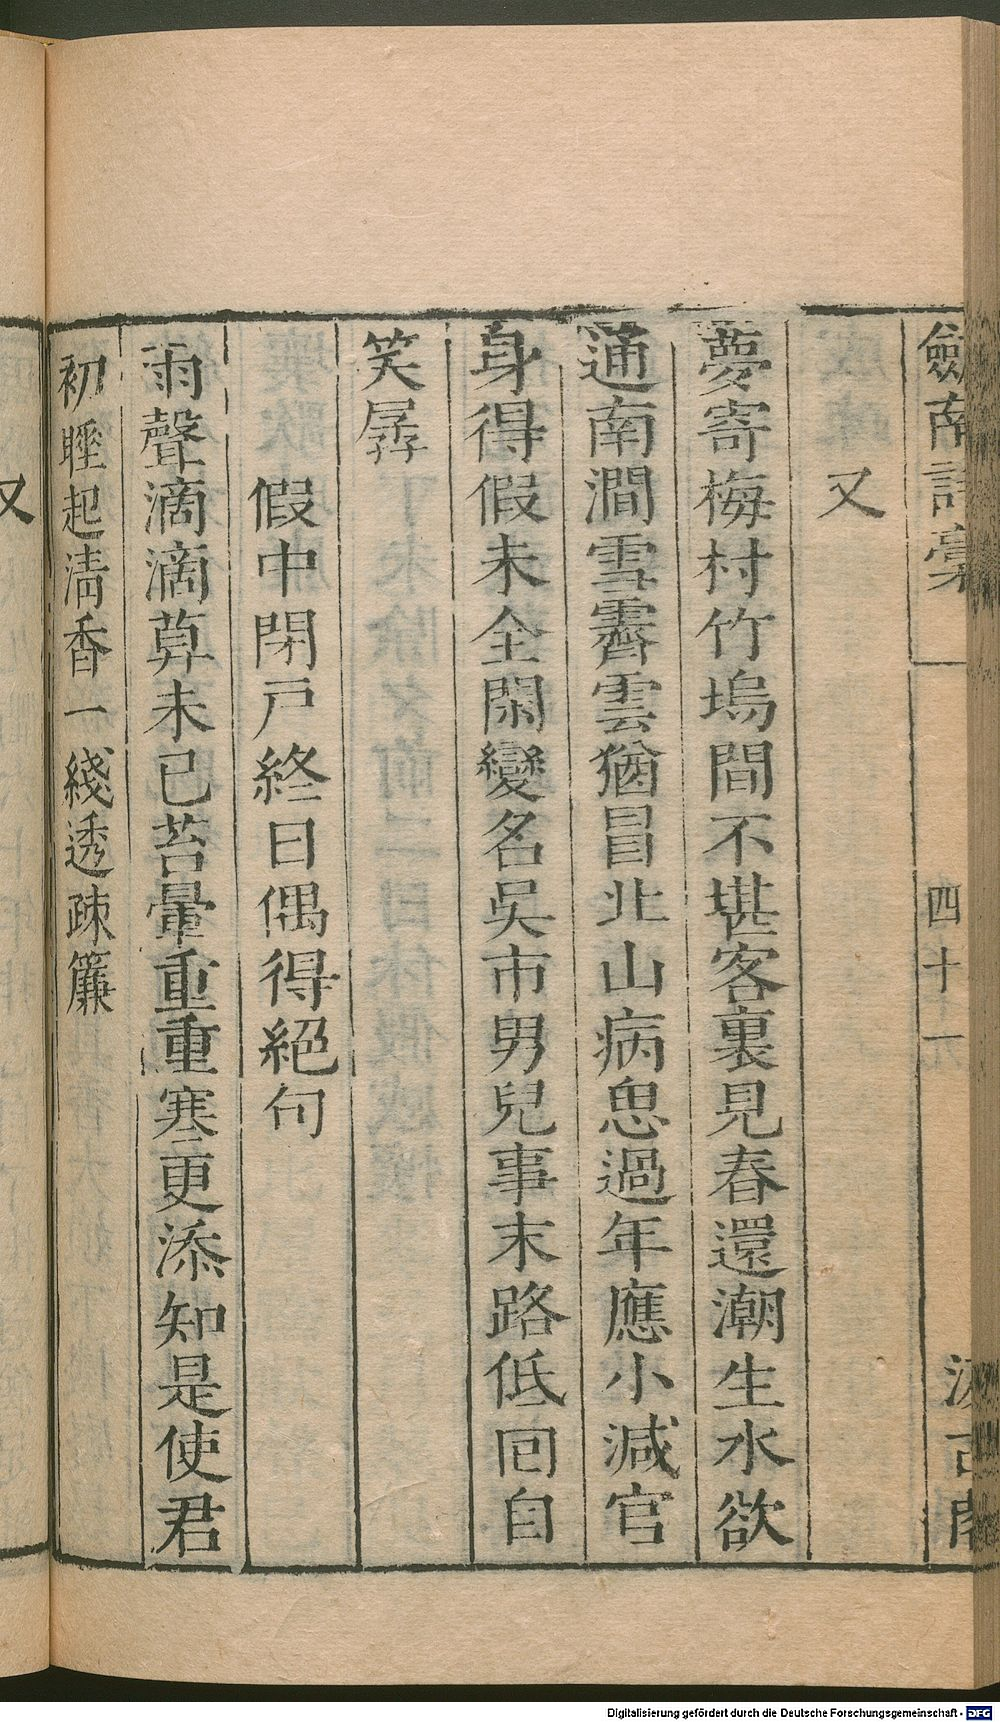 劔南詩稾 四十一 汲古閣
又
夢寄梅村竹塢間不堪客裏見春還潮生水欲
通南澗雪霽雲猶冒北山病思過年應小減官
身得假未全閑變名吳市男兒事末路低回自
笑孱
假中閉戸終日偶得絕句
雨聲滴滴算未已苔暈重重寒更添知是使君
初睡起淸香一綫透疎簾
又
Digitalisierung gefördert durch die Deutsche Forschungsgemeinschaft - DFG